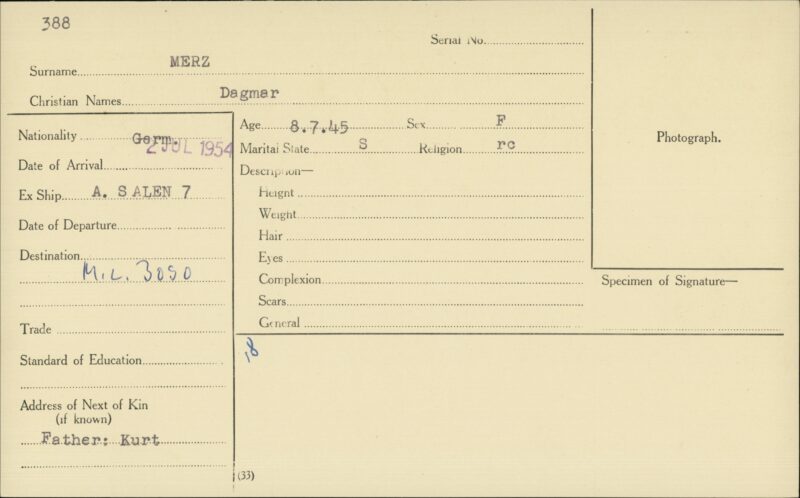 388
Serial No.
Surname MERZ
Christian Names Dagmar
Nationality Germ.
2 JUL 1954
Date of Arrival
Ex Ship A. SALEN 7
Date of Departure
Destination
M.L. 3050
Trade
Standard of Education
Address of Next of Kin
(if known)
Father: Kurt
Age 8.7.45 Sex F
Marital State S Religion rc
Description—
Height
Weight
Hair
Eyes
Complexion
Scars
General
(33)
Photograph.
Specimen of Signature—